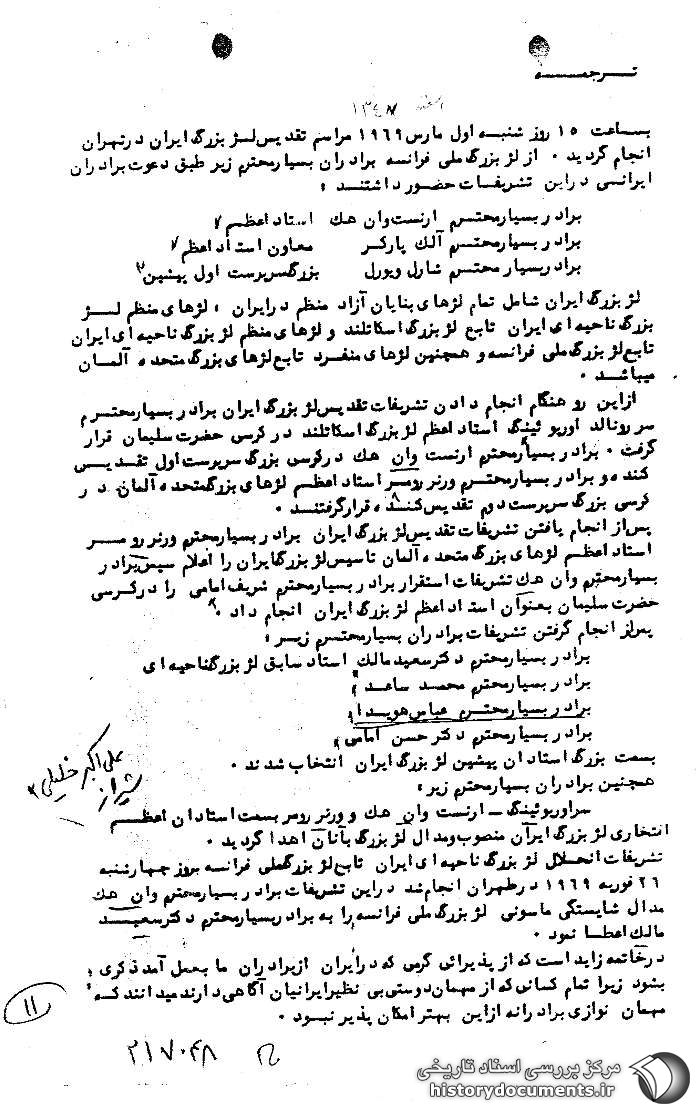 ترجمه
اسفند ۱۳۴۷
بساعت ۱۵ روز شنبه اول مارس ۱۹۶۹ مراسم تقدیس لژ بزرگ ایران در تهران
انجام گردید . از لژ بزرگ ملی فرانسه برادران بسیار محترم زیر طبق دعوت برادران
ایرانی در این تشریفات حضور داشتند :
برادر بسیار محترم ارنست وان هک استاد اعظم
برادر بسیار محترم آلک پارکر معاون استاد اعظم
برادر بسیار محترم شارل ویورل بزرگ سرپرست اول پیشین
لژ بزرگ ایران شامل تمام لژهای بنایان آزاد منظم در ایران ، لژهای منظم لژ
بزرگ ناحیه ای ایران تابع لژ بزرگ اسکاتلند و لژهای منظم لژ بزرگ ناحیه ای ایران
تابع لژ بزرگ ملی فرانسه و همچنین لژهای منفرد تابع لژهای بزرگ متحده آلمان
میباشد .
از این رو هنگام انجام دادن تشریفات تقدیس لژ بزرگ ایران برادر بسیار محترم
سر رونالد اورپوئینگ استاد اعظم لژ بزرگ اسکاتلند در کرسی حضرت سلیمان قرار
گرفت . برادر بسیار محترم ارنست وان هک در کرسی بزرگ سرپرست اول تقدیس
کننده و برادر بسیار محترم ورنر رومر استاد اعظم لژهای بزرگ متحده آلمان در
کرسی بزرگ سرپرست دوم تقدیس کننده قرار گرفتند .
پس از انجام یافتن تشریفات تقدیس لژ بزرگ ایران برادر بسیار محترم ورنر رومر
استاد اعظم لژهای بزرگ متحده آلمان تاسیس لژ بزرگ ایران را اعلام سپس برادر
بسیار محترم وان هک تشریفات استقرار برادر بسیار محترم شریف امامی را در کرسی
حضرت سلیمان بعنوان استاد اعظم لژ بزرگ ایران انجام داد .
پس از انجام گرفتن تشریفات برادران بسیار محترم زیر :
برادر بسیار محترم دکتر سعید مالک استاد سابق لژ بزرگ ناحیه ای
برادر بسیار محترم محمد ساعد
برادر بسیار محترم عباس هویدا
برادر بسیار محترم دکتر حسن امامی
بسمت بزرگ استادان پیشین لژ بزرگ ایران انتخاب شدند .
همچنین برادران بسیار محترم زیر :
علی اکبر خلیلی
شیراز
سر اورپوئینگ - ارنست وان هک و ورنر رومر بسمت استادان اعظم
افتخاری لژ بزرگ ایران منصوب و مدال لژ بزرگ بآنان اهدا گردید .
تشریفات انحلال لژ بزرگ ناحیه ای ایران تابع لژ بزرگ ملی فرانسه بروز چهارشنبه
۲۶ فوریه ۱۹۶۹ در طهران انجام شد در این تشریفات برادر بسیار محترم وان هک
مدال شایستگی ماسونی لژ بزرگ ملی فرانسه را به برادر بسیار محترم دکتر سعید
مالک اعطا نمود .
در خاتمه زاید است که از پذیرائی گرمی که در ایران از برادران ما بعمل آمد ذکری
بشود زیرا تمام کسانی که از مهمان دوستی بی نظیر ایرانیان آگاهی دارند میدانند که
مهمان نوازی برادرانه از این بهتر امکان پذیر نبود .
۱۱
۲۱۷۰۴۸
مرکز بررسی اسناد تاریخی
historydocuments.ir